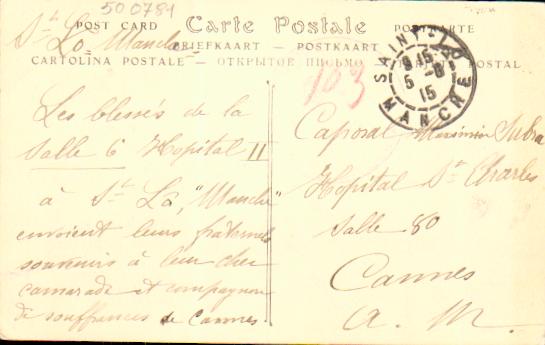 500784
POST CARD Carte Postale POSTKARTE
BRIEFKAART - POSTKAART
CARTOLINA POSTALE - ОТКРЫТОЕ ПИСЬМО - POSTAL
St Lo Manche
SAINT-LO
5 15
MANCHE
103
Les blessés de la
Salle 6 Hopital II
à St Lo, "Manche"
envoient leurs fraternels
souvenirs à leur cher
camarade et compagnon
de souffrances de Cannes.
Caporal
Hopital St Charles
Salle 80
Cannes
A. M.